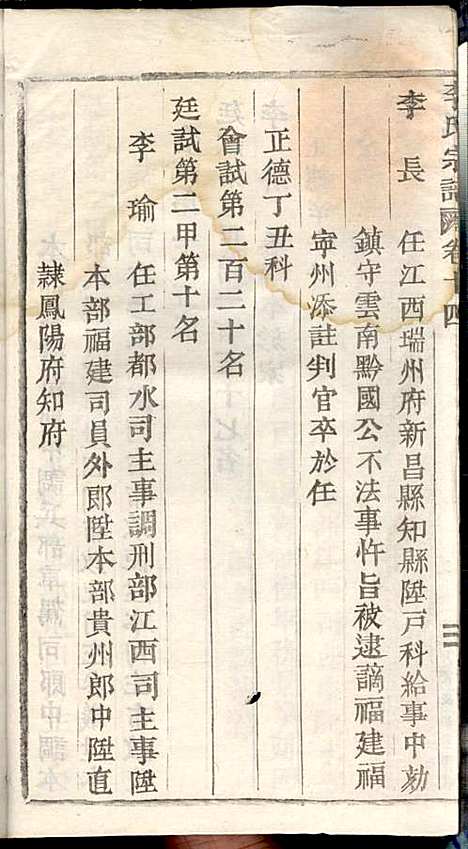 李氏宗譜 卷十四
李 長 任江西瑞州府新昌縣知縣陞戶科給事中劾
鎮守雲南黔國公不法事忤旨被逮謫福建福
寜州添註判官卒於任
正德丁丑科
會試第二百二十名
廷試第二甲第十名
李 瑜 任工部都水司主事調刑部江西司主事陞
本部福建司員外郎陞本部貴州郎中陞直
隷鳳陽府知府